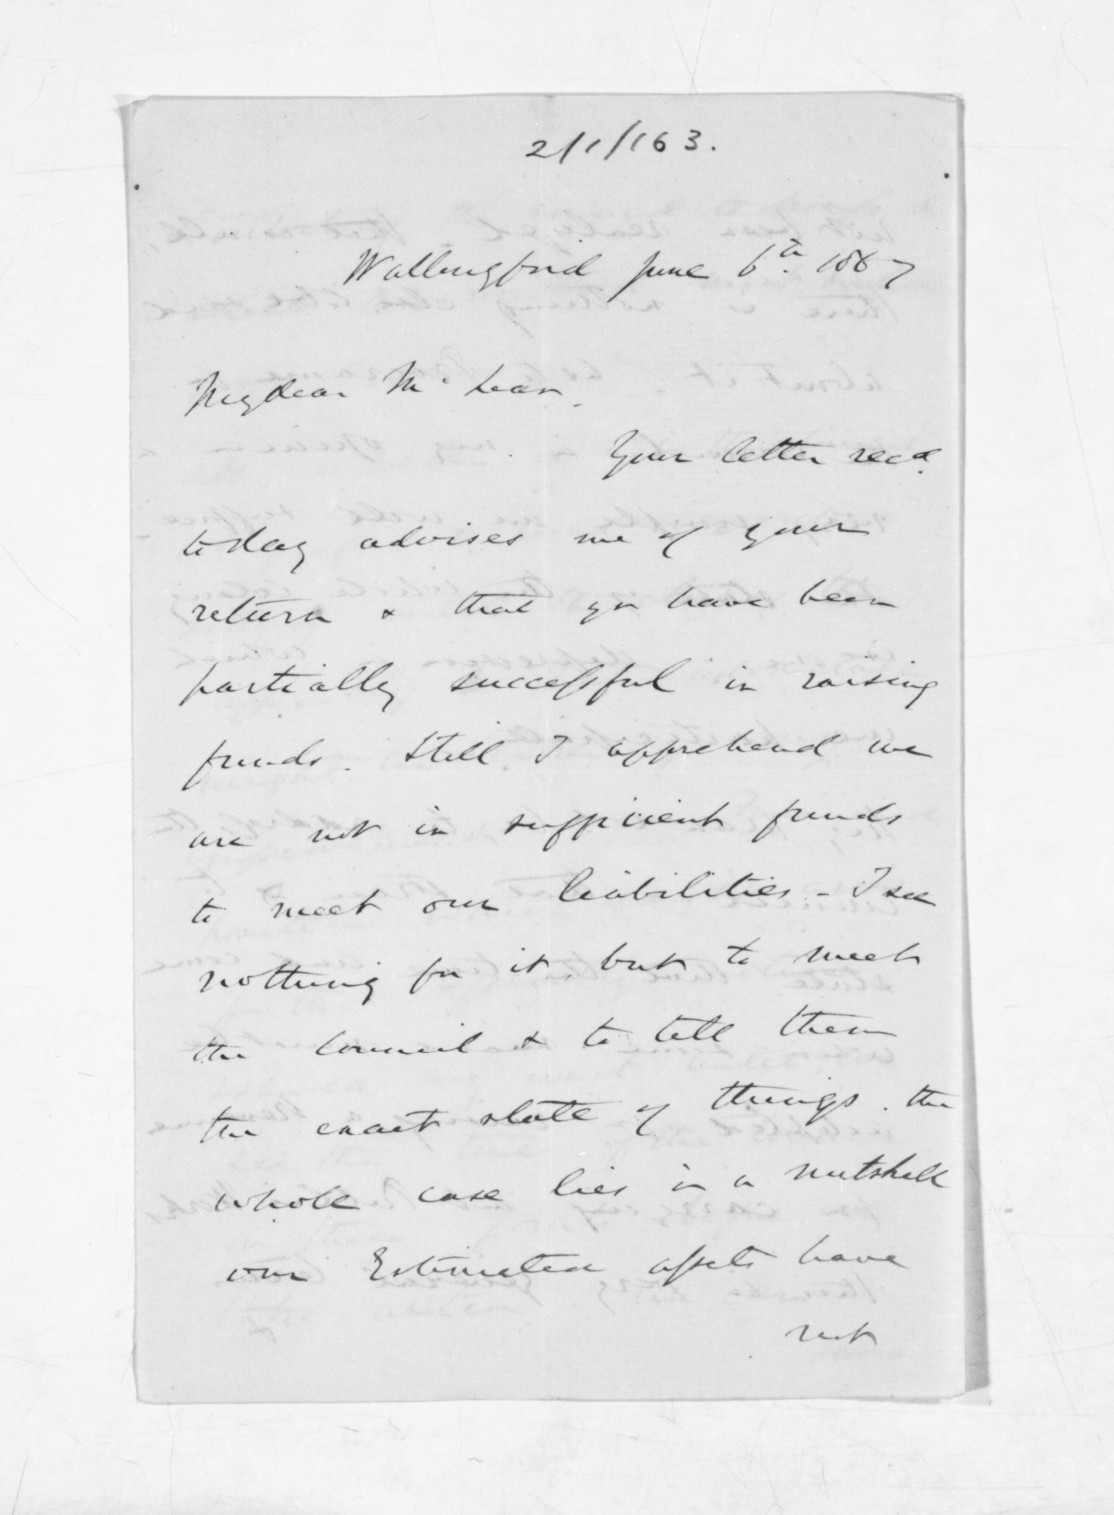 2/1/163.
Wallingford June 6th. 1867
My dear McLean.
Your letter recd.
today advises me of your
return & that you have been
partially successful in raising
funds. Still I apprehend we
are not in sufficient funds
to meet our liabilities - I see
nothing for it but to meet
the Council & to tell them
the exact state of things. the
whole case lies in a nutshell
our Estimated assets have
not